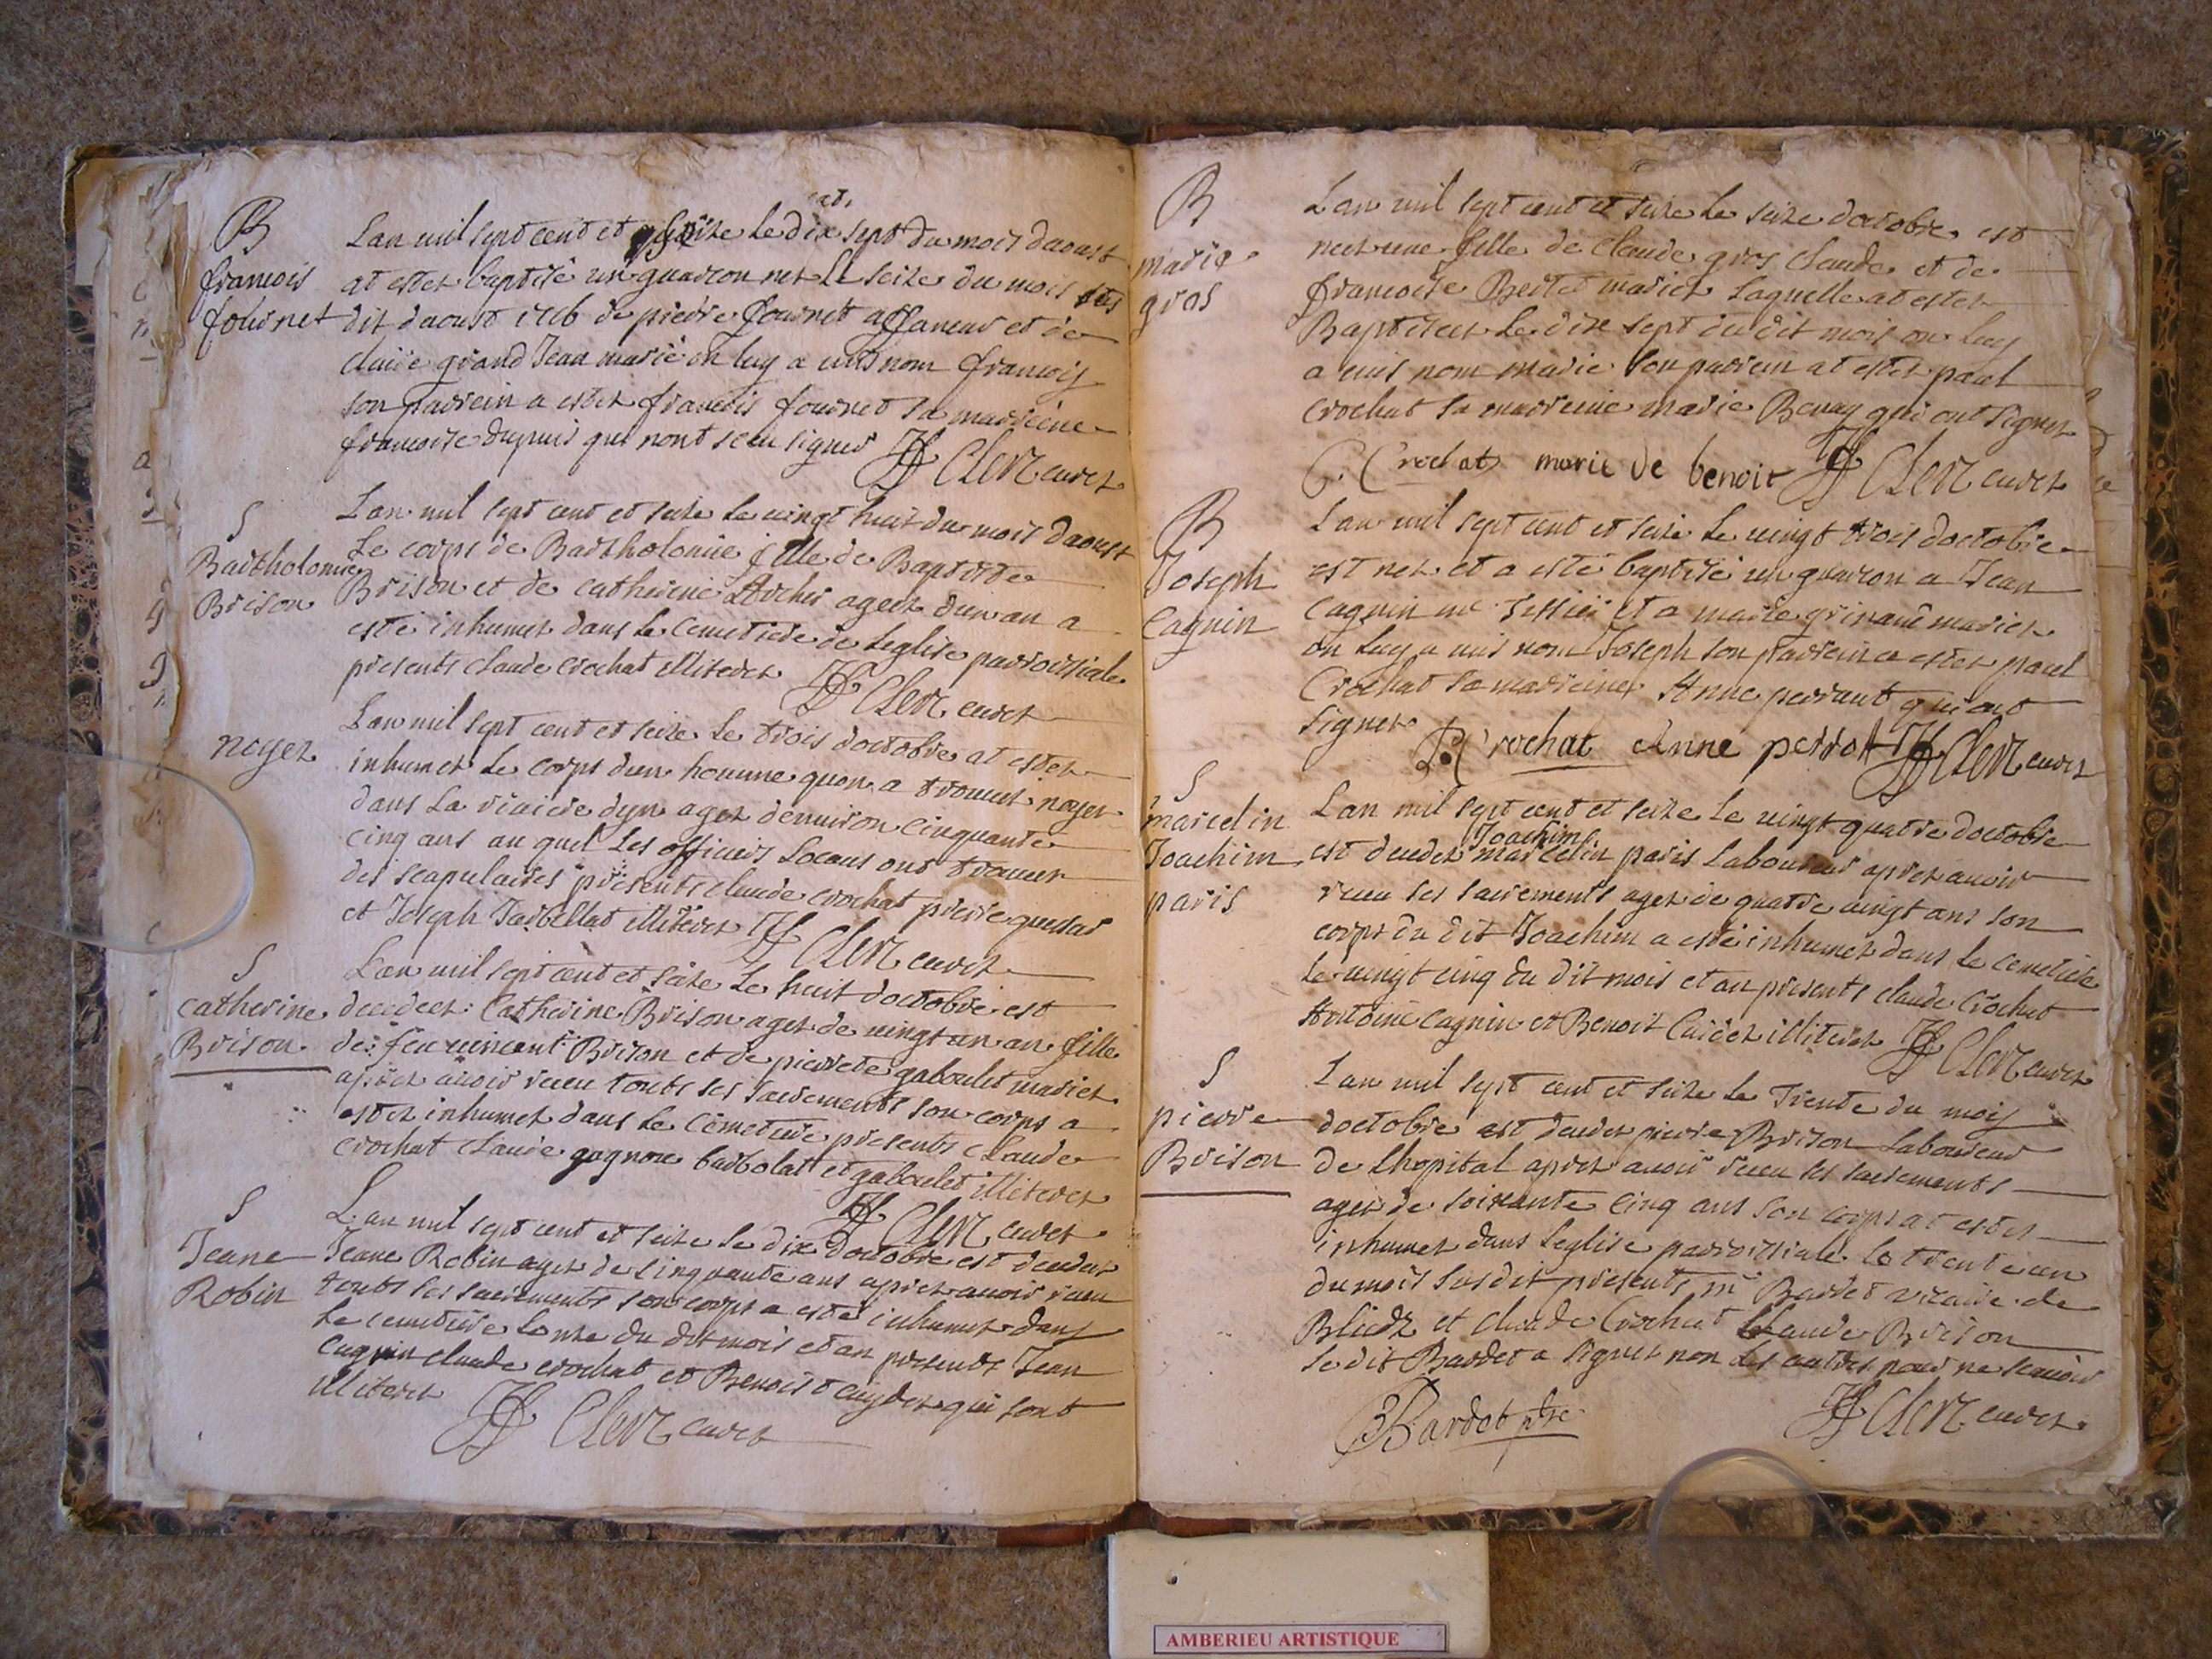 B
francois
fournet
Lan mil sept cent et seize le dix sept du mois daoust
at estez baptisé un guarcon net le seize du mois sus
dit daoust 1716 de pierre fournet affaneur et de
claire grand Jean marié on luy a mis nom francois
son parrein a estez francois fournet sa marreine
francoise dupuis qui nont sceu signer JF Clerc curez
S
Bartholomie
Brison
Lan mil sept cent et seize le vingt huit du mois daoust
Le corps de Bartholomie fille de Baptiste
Brison et de catherine Archer agee dun an a
esté inhumez dans le cemetiere de leglise parroissiale
presents claude crochat illiterez JF Clerc curez
noyez
Lan mil sept cent et seize le trois doctobre at estez
inhumez le corps dun homme quon a trouvez noyer
dans la riviere dyn agez denviron cinquante
cinq ans au quel les officiers locaus ont trouver
des scapulaires presents claude crochat pierre
et Joseph Barbellat illiterez JF Clerc curez
S
catherine
Brison
Lan mil sept cent et seize le huit doctobre est
decedeez Catherine Brison agez de vingt un an fille
de feu vincent Brison et de pierrete gaboulet mariez
aprez avoir receu touts ses sacrements son corps a
estez inhumez dans le cemetiere presents claude
crochat claude gagnon barbolat et gaboulet illiterez
JF Clerc curez
S
Jeane
Robin
Lan mil sept cent et seize le dix doctobre est decedez
Jeane Robin agez de cinquante ans aprez avoir receu
touts ses sacrements son corps a esté inhumez dans
le cemetiere le onze du dit mois et an presents Jean
Cagnin claude crochat et Benoist cuydez qui sont
illiterez JF Clerc curez
B
marie
gros
Lan mil sept cent et seize le seize doctobre est
neet une fille de claude gros claude et de
francoise Bertet mariez laquelle at estez
Baptiseez le dix sept du dit mois on luy
a mis nom marie son parrein at estez paul
crochat sa marreine marie Benay qui ont signez
P. Crochat marie de benoit JF Clerc curez
B
Joseph
Cagnin
Lan mil sept cent et seize le vingt trois doctobre
est net et a esté baptisé un guarcon a Jean
Cagnin me tissier et a marie grinand mariez
on luy a mis nom Joseph son parrein a estez paul
Crochat sa marreine Anne perraut qui ont
signez
P. Crochat Anne perrot JF Clerc curez
S
marcelin
Joachim
paris
Lan mil sept cent et seize le vingt quatre doctobre
Joachim
est decedez marcelin paris laboureur aprez avoir
receu ses sacrements agez de quatre vingt ans son
corps du dit Joachim a esté inhumez dans le cemetiere
le vingt cinq du dit mois et an presents claude Crochat
Antoine Cagnin et Benoit Cuidez illiterez JF Clerc curez
S
pierre
Brison
Lan mil sept cent et seize le Trente du mois
doctobre est decedez pierre Brison laboureur
de Lhopital aprez avoir receu ses sacrements
agez de soixante cinq ans son corps at estez
inhumez dans leglise parroissiale le trente un
du mois susdit presents mr Bardet vicaire de
Blied et claude Crochat Claude Brison
le dit Bardet a signez non les autres pour ne scavoir
Bardet ptre JF Clerc curez
AMBERIEU ARTISTIQUE